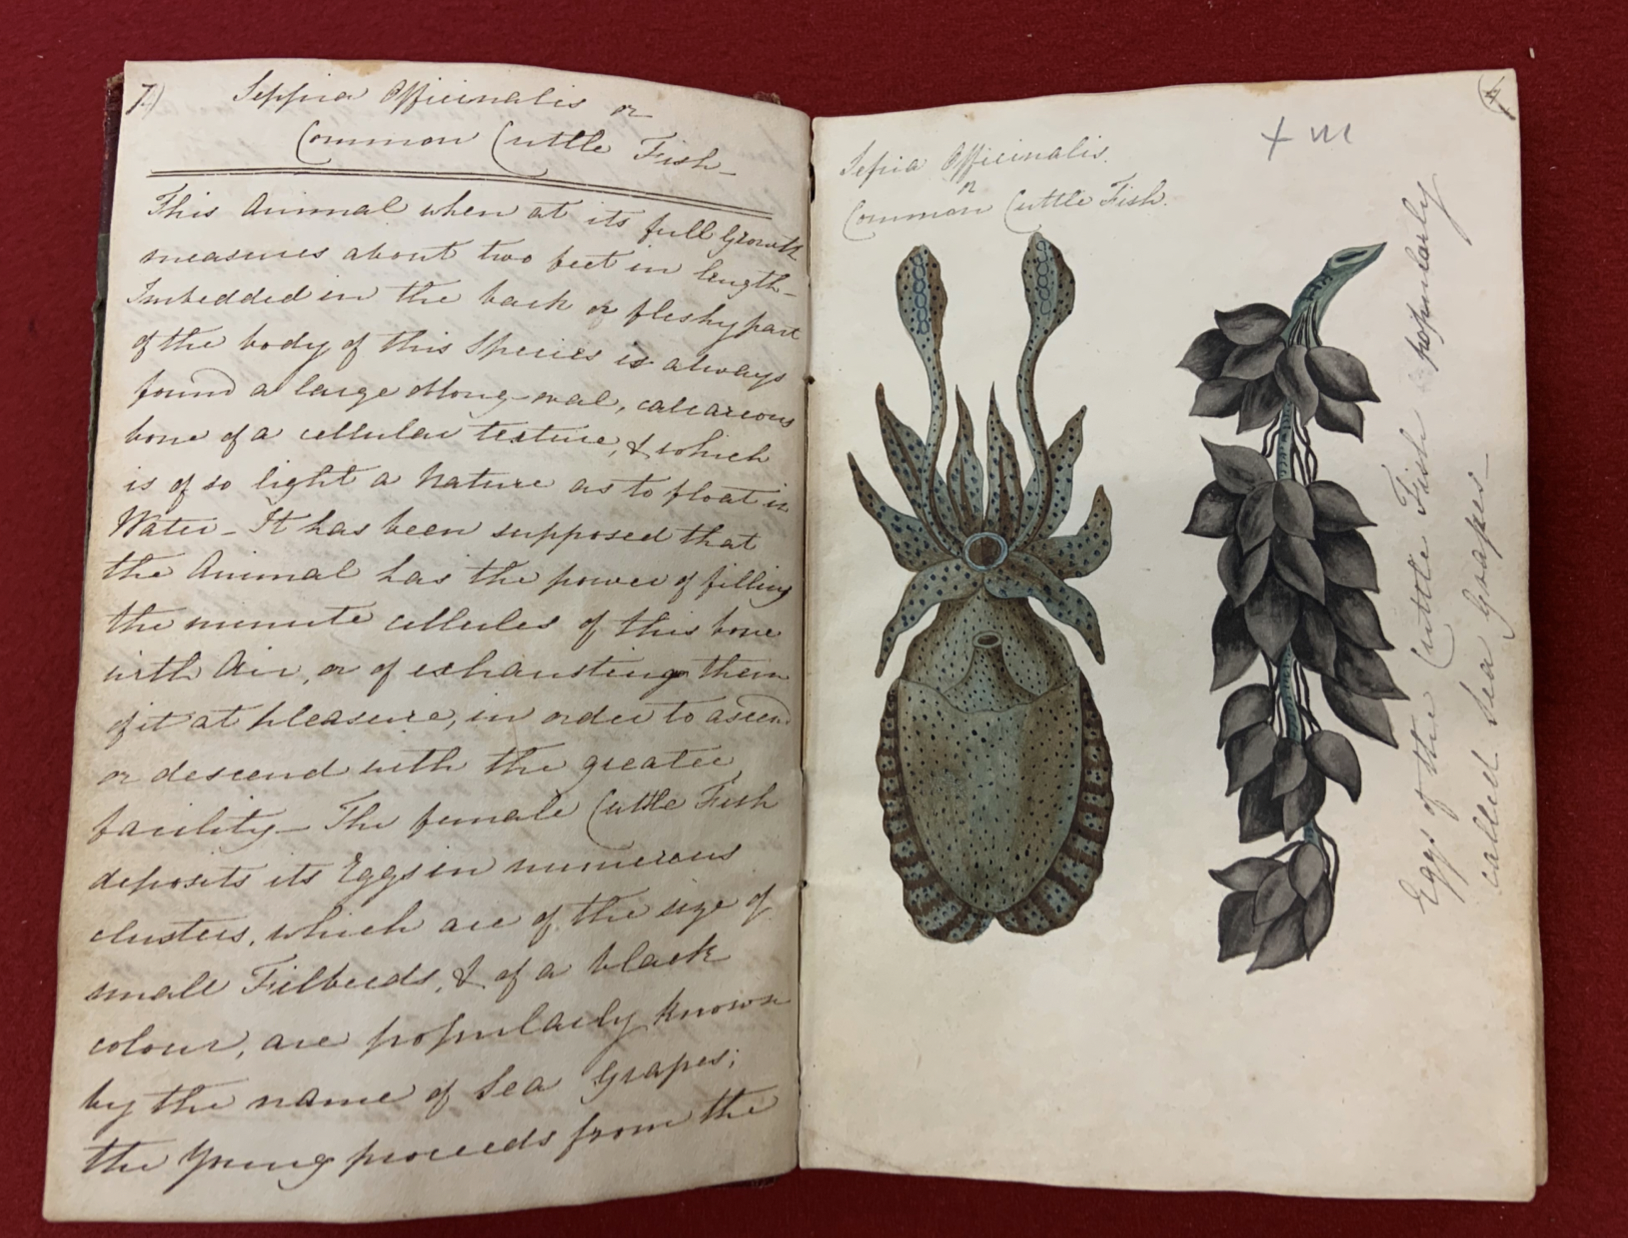 7)
Seppia Officinalis or
Common Cuttle Fish_
This Animal when at its full Growth
measures about two feet in length_
Imbedded in the back or fleshy part
of the body of this Species is always
found a large oblong-oval, calcareous
bone of a cellular texture, & which
is of so light a Nature as to float in
Water_ It has been supposed that
the Animal has the power of filling
the minute cellules of this bone
with Air, or of exhausting them
of it at pleasure, in order to ascend
or descend with the greater
facility_ The female Cuttle Fish
deposits its Eggs in numerous
clusters, which are of the size of
small Filberds, & of a black
colour, are popularly known
by the name of Sea Grapes;
the Young proceeds from the
Sepia Officinalis.
or
Common Cuttle Fish.
Eggs of the Cuttle Fish popularly
called Sea Grapes_